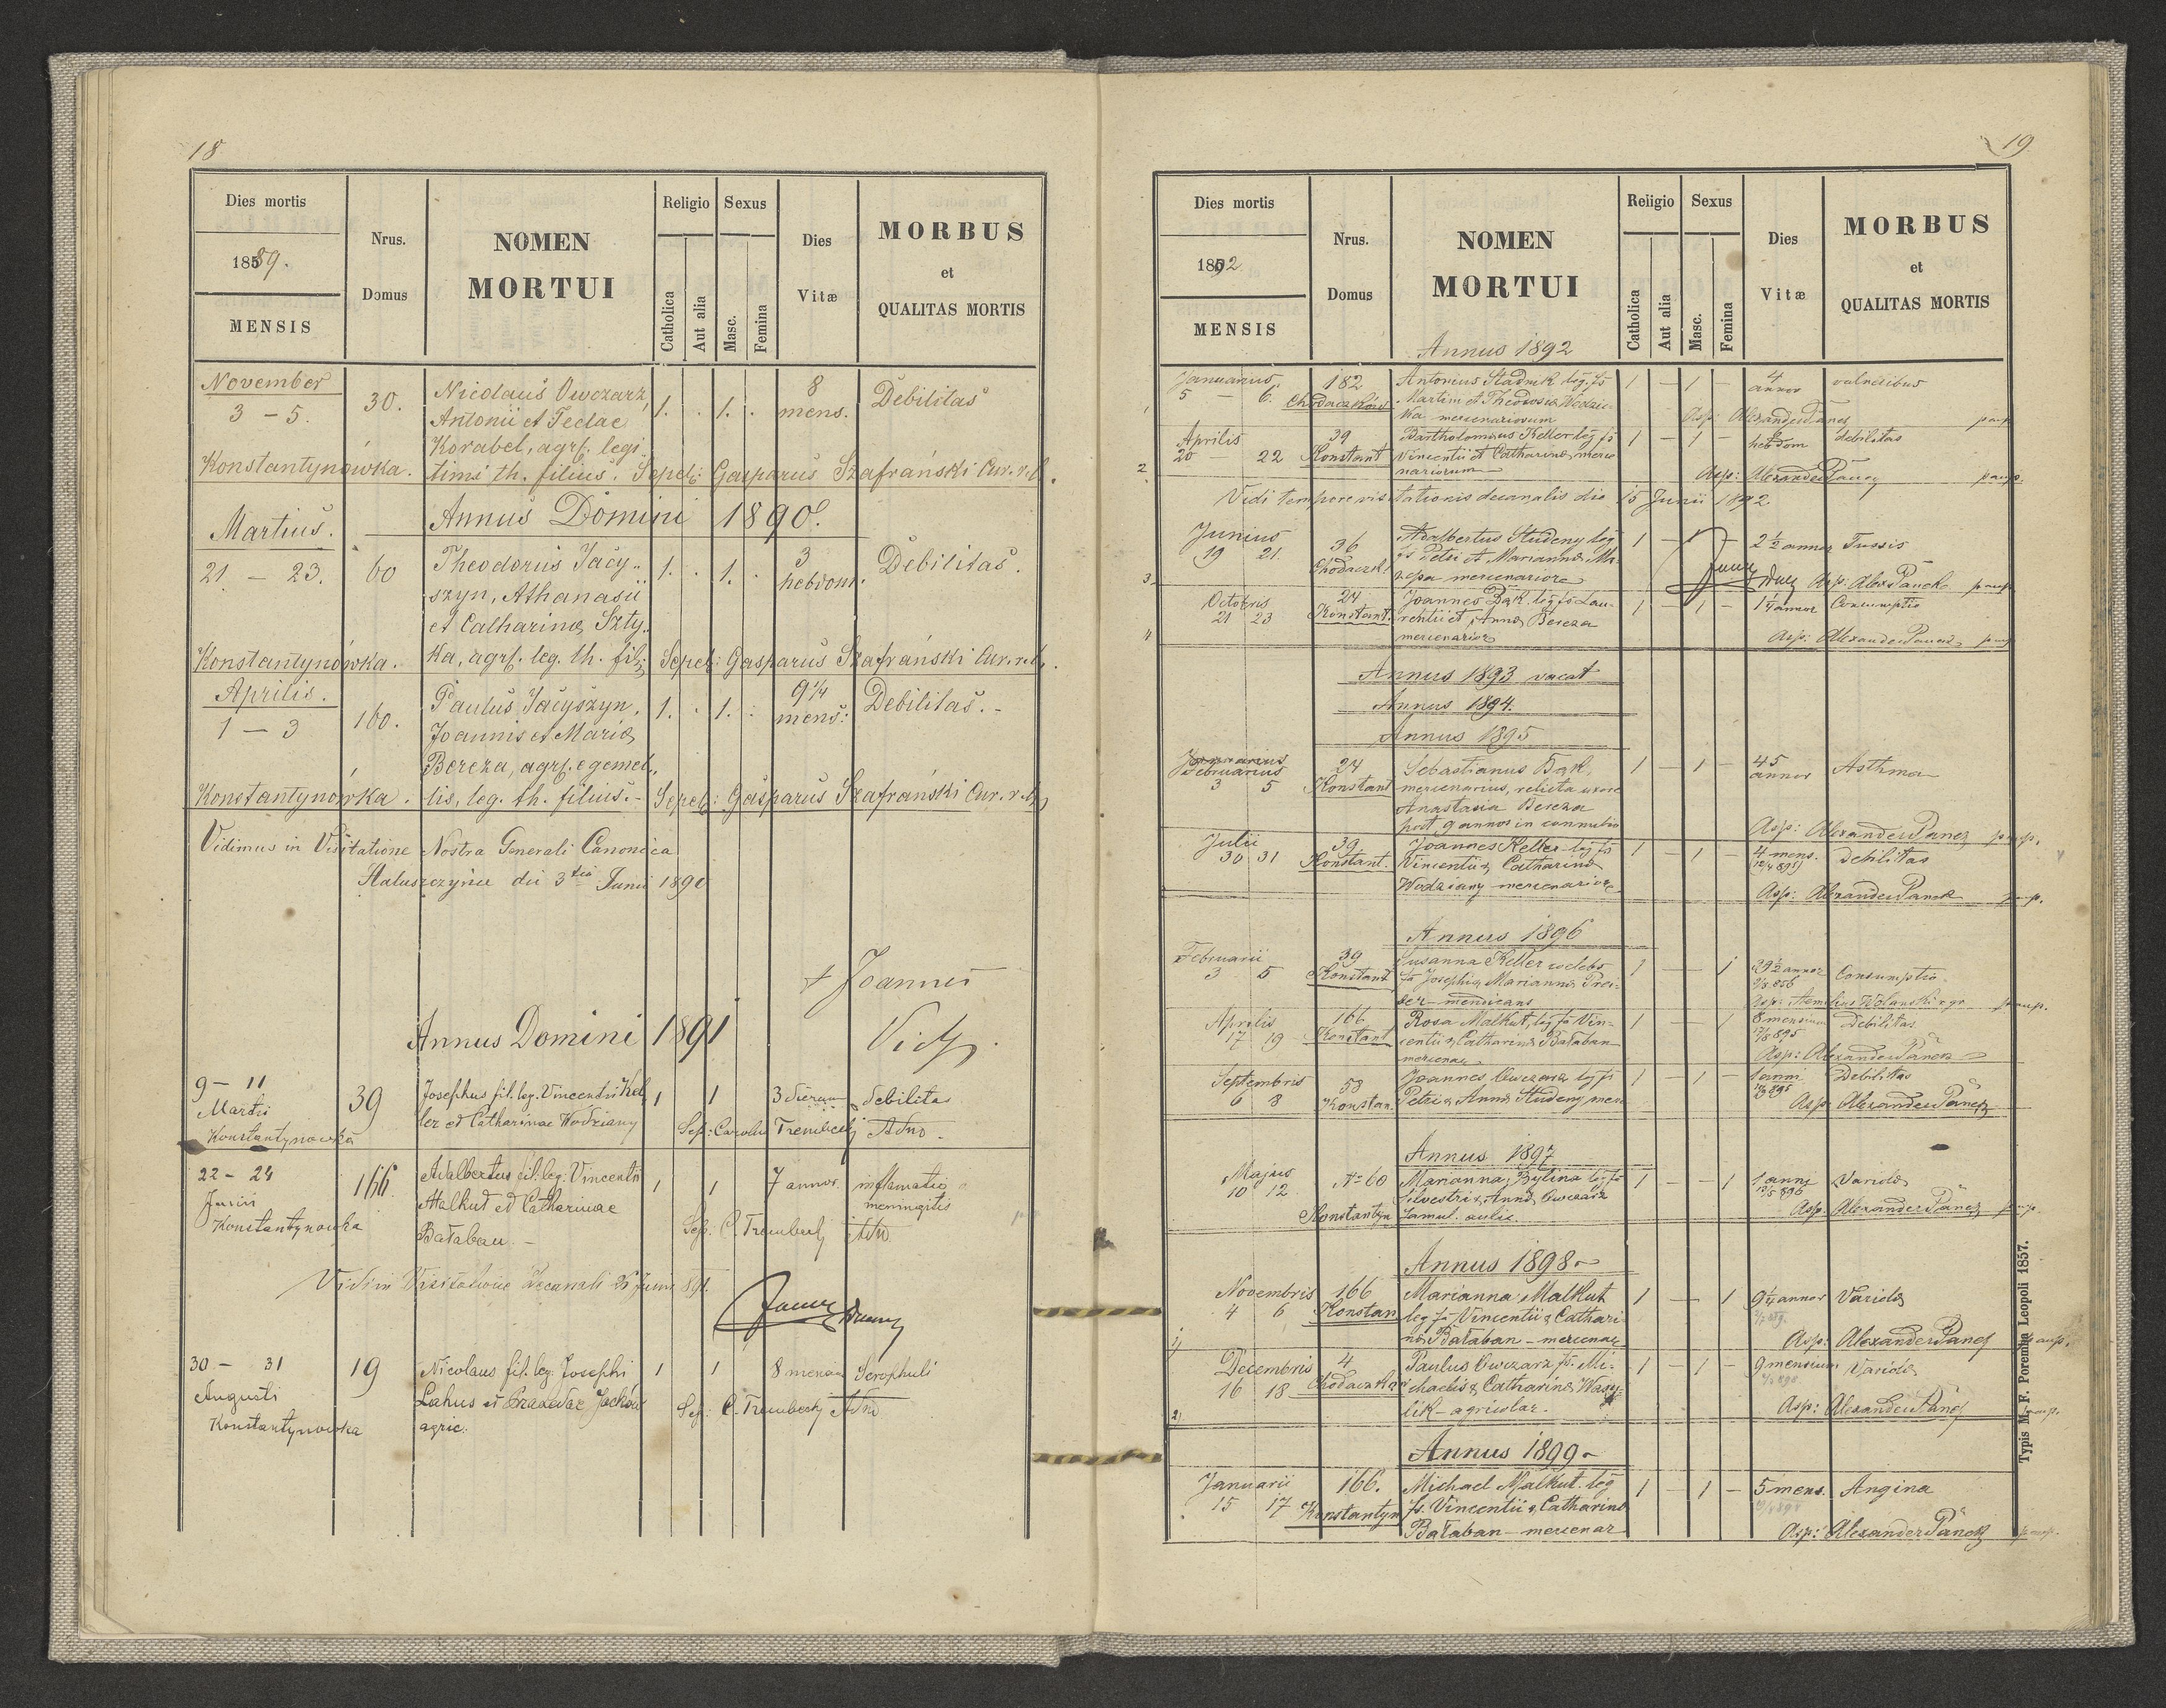 18
Dies mortis
1889.
MENSIS
Nrus.
Domus
NOMEN
MORTUI
Religio
Catholica
Aut alia
Sexus
Masc.
Femina
Dies
Vitæ
MORBUS
et
QUALITAS MORTIS
November
3 - 5.
30.
Nicolaus Owczarz,
Antonii et Teclae
Korabel, agrf. legi
Konstantynówka. timi th. filius. Sepel: Gasparus Szafrański Cur. r. l.
1. . 1. .
8
mens.
Debilitas
Annus Domini 1890.
Martius.
21 - 23.
60
Theodorus Jacy„
szyn, Athanasii
et Catharinæ Szty„
Konstantynówka. ka, agrf. leg. th. fil; Sepel: Gasparus Szafrański Cur. r. l.
1. . 1. .
3
hebdom.
Debilitas.
Aprilis.
1 - 3
160.
Paulus Jacyszyn,
Joannis et Mariæ
Bereza, agrf. e gemel„
Konstantynówka. lis, leg. th. filius.- Sepel: Gasparus Szafrański Cur. r. l.
1. . 1. .
9 1/4
mens:
Debilitas.-
Vidimus in Visitatione Nostra Generali Canonica
Haluszczyńce die 3tia Junii 1890
+ Joannes
Annus Domini 1891
9 - 11
Martii
Konstantynowka
39
Josephus fil. leg. Vincentii Kel
ler et Catharinae Wodziany
1 1
3 dierum
debilitas
Sep: Carolus Trembecky Adno.
22 - 24
Junii
Konstantynowka
166.
Adalbertus fil. leg. Vincentii
Malkut et Catharinae
Bałaban -
1 1
7 annor.
inflamatio
meningitis
Sep. C. Trembecky Adno
Vidi in Visitatione Decanali 25 Junii 891.
30 - 31
Augusti
Konstantynowka
19
Nicolaus fil. leg. Josephi
Lahus et Praxedae Jachów
agric.
1 1
8 mensium
Scrophuli
Sep: C. Trembecky Adno
19
Dies mortis
1892
MENSIS
Nrus.
Domus
NOMEN
MORTUI
Religio
Catholica
Aut alia
Sexus
Masc.
Femina
Dies
Vitæ
MORBUS
et
QUALITAS MORTIS
Annus 1892
Januarius
5 - 6.
182
Chodaczków
Antonius Stadnik leg. fs
Martini et Theodosiæ Wodzic-
ka mercenariorum
1 - 1 -
4
annor
Asp: Alexander Panez
2
Aprilis
20 - 22
39
Konstant
Bartholomeus Keller leg fs
Vincentii et Catharinæ merce
nariorum
1 - 1 -
hebdom
debilitas
Asp: Alexander Panez
Vidi tempore visitationis decanalis die 15 Junii 1892
3
Junius
19 21.
36
Chodaczk.
Adalbertus Studeny leg
fs Petri et Mariannæ Ma
zepa mercenarior
1 - 1
2 1/2 annor
Tussis
Asp: Alex Panek
4
Octobris
21 23
24
Konstant.
Joannes Bąk leg fs Lau-
rentii et Annæ Bereza
mercenarior
1 - 1 -
1 1/4 annor
Consumptio
Asp: Alexander Panek
Annus 1893 vacat
Annus 1894.
Annus 1895
Januarius
Februarius
3 5
24
Konstant
Sebastianus Bąk,
mercenarius, relicta uxore
Anastasia Bereza
post 9 annos in connubio
1 - 1 -
45
annor
Asthma
Asp: Alexander Panez
Julii
30 31
39
Konstant.
Joannes Keller leg fs
Vincentii & Catharinæ
Wodziany mercenarior
1 - 1 -
4 mens.
debilitas
Asp: Alexander Panek
Annus 1896
Februarii
3 5
39
Konstant
Susanna Keller
fa Josephi & Mariannæ Trei-
ber - mendicans
1 - 1
39 1/2 annor
Consumptio
Aprilis
17 19
166
Konstant
Rosa Malkut, leg fa Vin-
centii & Catharinæ Bałaban
mercenar
1 - 1
8 mensium
debilitas
Asp: Alexander Panek
Septembris
6 8
58
Konstan
Joannes Owczarz leg fs
Petri & Annæ Studeny mer
1 - 1 -
1 anni
Debilitas
Asp Alexander Panek
Annus 1897
Majus
10 12
No 60
Konstantyn
Marianna Bylina leg fa
Silvestri & Annæ Owczarz
famul. aulic.
1 - - 1
1 anni
Variola
Asp. Alexander Panek
Annus 1898
1)
Novembris
4 6
166
Konstan
Marianna Malkut
leg fa Vincentii & Cathari
næ Bałaban - mercenar
1 - 1
9 1/4 annor
Variola
Asp: Alexander Panek
2)
Decembris
16 18
4
Chodaczków
Paulus Owczarz fs. Mi-
chaelis & Catharinæ Wasy-
lik - agricolar.
1 - 1 -
9 mensium
Variola
Asp: Alexander Panek
Annus 1899
Januarii
15 17
166.
Konstantyn
Michael Malkut leg
fs. Vincentii & Catharinæ
Bałaban - mercenar
1 - 1 -
5 mens.
Angina
Asp: Alexander Panek
Typis M. F. Poremba Leopoli 1857.